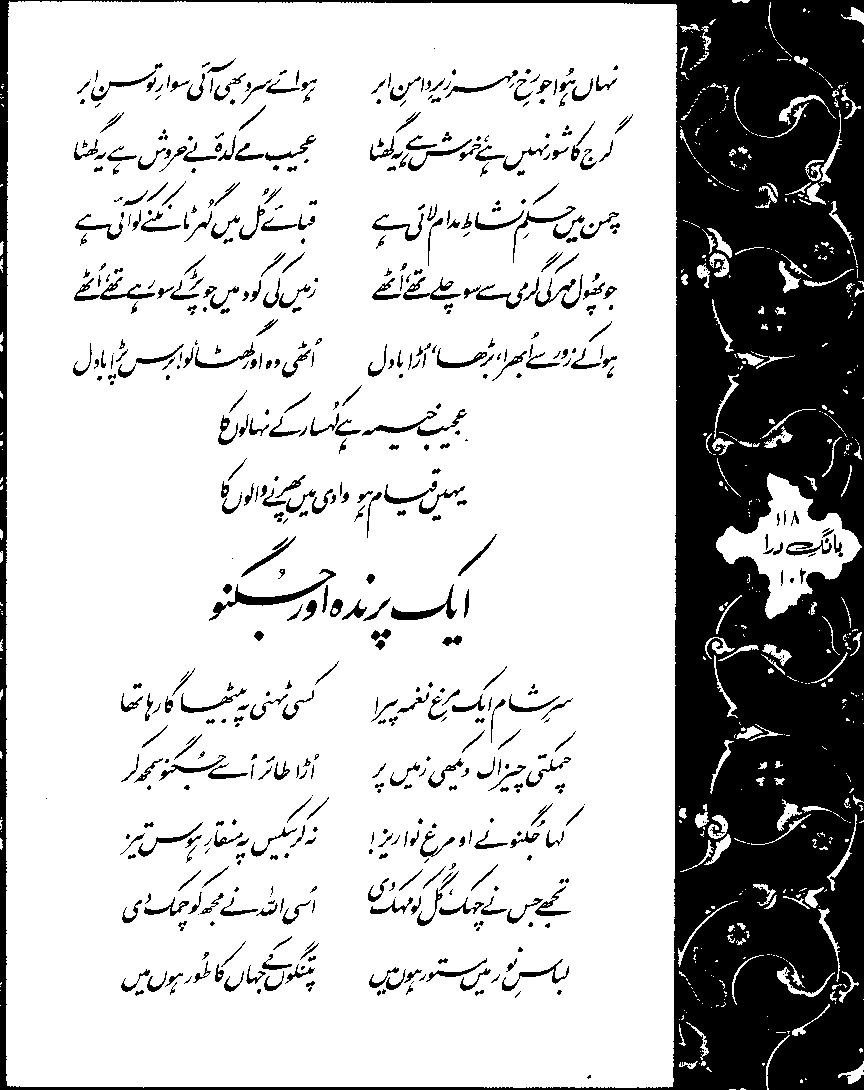 نہاں ہُوا جو رخِ مہر زیرِ دامنِ ابر ہوائے سرد بھی آئی سوارِ توسنِ ابر
گرج کا شور نہیں ہے، خموش ہے یہ گھٹا عجیب مے کدۂ بے خروش ہے یہ گھٹا
چمن میں حکمِ نشاطِ مدام لائی ہے قبائے گُل میں گُہر ٹانکنے کو آئی ہے
جو پھُول مہر کی گرمی سے سو چلے تھے، اُٹھے زمیں کی گود میں جو پڑ کے سو رہے تھے، اُٹھے
ہوا کے زور سے اُبھرا، بڑھا، اُڑا بادل اُٹھی وہ اور گھٹا، لو! برس پڑا بادل
عجیب خیمہ ہے کُہسار کے نہالوں کا
یہیں قیام ہو وادی میں پھِرنے والوں کا
ایک پرندہ اور جُگنو
سرِ شام ایک مرغِ نغمہ پیرا کسی ٹہنی پہ بیٹھا گا رہا تھا
چمکتی چیز اک دیکھی زمیں پر اُڑا طائر اُسے جُگنو سمجھ کر
کہا جُگنو نے او مرغِ نواریز! نہ کر بیکس پہ منقارِ ہوس تیز
تجھے جس نے چہک، گُل کو مہک دی اُسی اللہ نے مجھ کو چمک دی
لباسِ نور میں مستور ہوں میں پتنگوں کے جہاں کا طُور ہوں میں
۱۱۸
بانگِ درا
۱۰۲